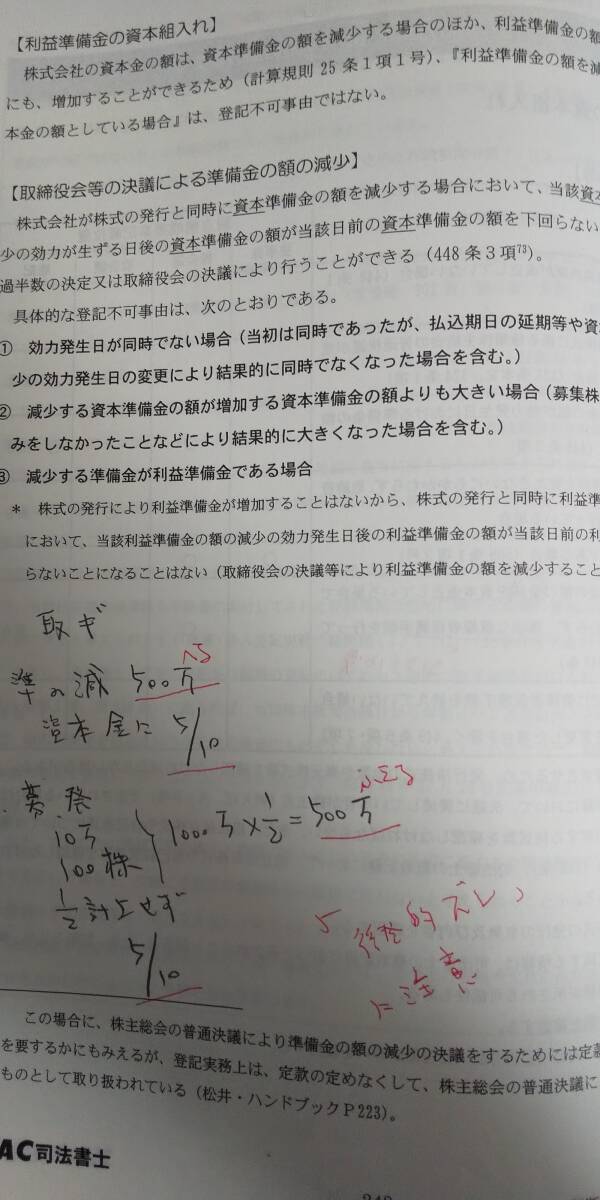 【利益準備金の資本組入れ】
株式会社の資本金の額は、資本準備金の額を減少する場合のほか、利益準備金の額
にも、増加することができるため（計算規則 25 条 1 項 1 号）、『利益準備金の額を減
本金の額としている場合』は、登記不可事由ではない。
【取締役会等の決議による準備金の額の減少】
株式会社が株式の発行と同時に資本準備金の額を減少する場合において、当該資本
少の効力が生ずる日後の資本準備金の額が当該日前の資本準備金の額を下回らない
過半数の決定又は取締役会の決議により行うことができる（448 条 3 項73）。
具体的な登記不可事由は、次のとおりである。
① 効力発生日が同時でない場合（当初は同時であったが、払込期日の延期等や資
少の効力発生日の変更により結果的に同時でなくなった場合を含む。）
② 減少する資本準備金の額が増加する資本準備金の額よりも大きい場合（募集株
みをしなかったことなどにより結果的に大きくなった場合を含む。）
③ 減少する準備金が利益準備金である場合
＊ 株式の発行により利益準備金が増加することはないから、株式の発行と同時に利益準
において、当該利益準備金の額の減少の効力発生日後の利益準備金の額が当該日前の利
らないことになることはない（取締役会の決議等により利益準備金の額を減少すること
取ギ
へる
準の減 500万
資本金に 5/10
募・発
ふえる
10万
100株
1000万×1/2＝500万
1/2計上せず
5/10
後発的ズレ
に注意
この場合に、株主総会の普通決議により準備金の額の減少の決議をするためには定款
を要するかにもみえるが、登記実務上は、定款の定めなくして、株主総会の普通決議に
ものとして取り扱われている（松井・ハンドブックＰ223）。
AC司法書士